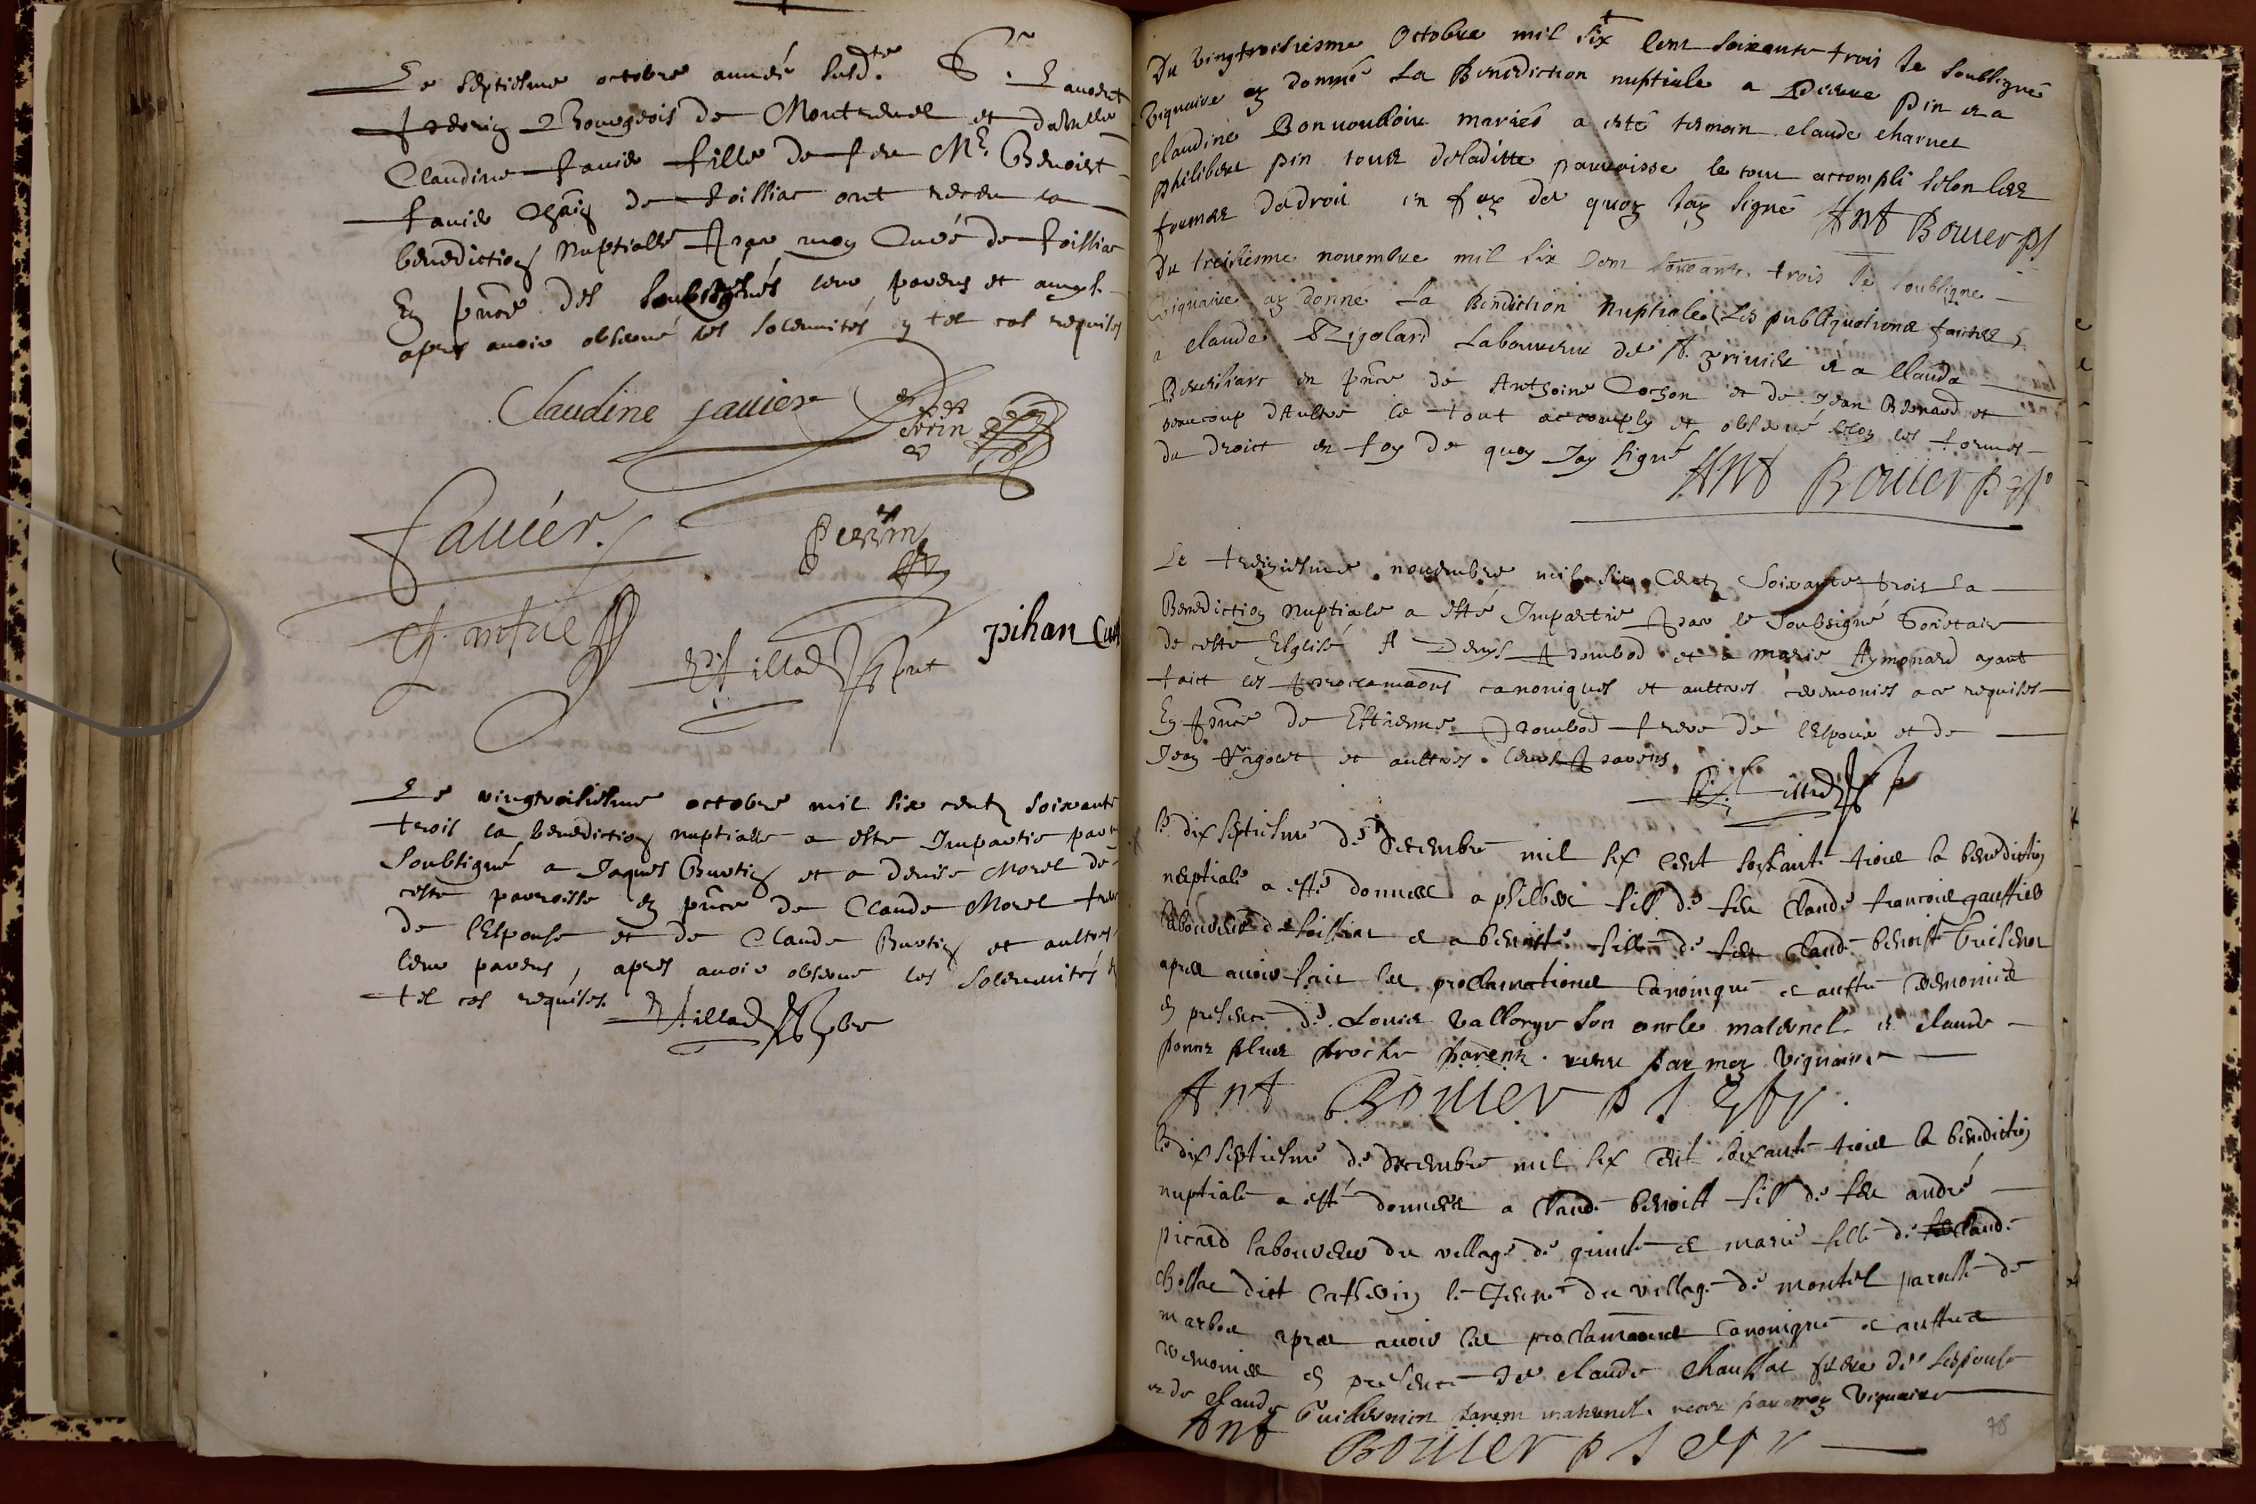 Le septiesme octobre année susd.te Sr. Lauvent
Perrin Bourgeois de Montrevel et dam.lle
Claudine favier fille de feu Mr. Benoist
favier Chatn de foissiac ont receu la
benediction Nuptialle par moy Curé de foissiac
En pnce des soubsignés leur parens et amys
apres avoir observé les solemnités en tel cas requises
Claudine favier
Perrin
favier.
Perrin
pihan Curé
Le vingtroisiesme octobre mil six cents soixante
trois la benediction nuptialle a esté Impartie par
soubsigné a Jaques Buatin et a denise Morel de
ceste parroisse en pnce de Claude Morel frere
de l'Espouse et de Claude Buatin et aultres
leur parens, apres avoir observé les solemnités
tel cas requises
Du vingtroisiesme Octobre mil six cent soixante trois Je soubsigné
viquaire ay donné La Benediction nuptiale a Pierre pin et a
claudine Bonvouloir mariés a esté temoin claude charvet
philibert pin tous de laditte parroisse le tout accompli selon les
formes de droit en foy de quoy Jay signé Ant Bouier ps
Du treisiesme novembre mil six cent soixante trois Je soubsigne
viquaire ay donné La Benediction Nuptiale (Les publiquations faittes)
a claude Rigolard Laboureur de St. et a Clauda
en pnce de Anthoine Cochon et de Jean Renard et
beaucoup d'Aultre le tout accomply et observé selon les formes
du droict en foy de quoy Jay signé Ant Bouier
Le treiziesme novembre mil six Cents soixante trois La
Benediction Nuptiale a esté Impartie par le soubsigné Societaire
de ceste Esglise A Denys et a marie Aymonard ayant
faict les proclamaons canoniques et aultres ceremonies a ce requises
En pnce de Estienne frere de l'Espoux et de
Jean et aultres leurs parens
le dix septiesme de decembre mil six cent soixante trois la benediction
nuptiale a esté donnee a philbert fils de feu Claude francois gauthier
laboureur de foissiac et a benoiste fille de feu Claude benoist
apres avoir fait les proclamations Canonique et autre ceremonies
en presence de Louis Vallorge son oncle maternel et claude
ponne plus proche parens. receu par moy viquaire
Ant Bouier
le dix septiesme de decembre mil six cent soixante trois la benediction
nuptiale a esté donnee a Claude benoist fils de feu andré
picard laboureur du village de et marie fille de Claude
dict Catherin le Jeune du village de montel paroisse de
marboz apres avoir les proclamaons Canonique et autres
ceremonies en presence de claude frere de lespouse
et de claude Guillermin parain maternel. receu par moy viquaire
Ant Bouier
78